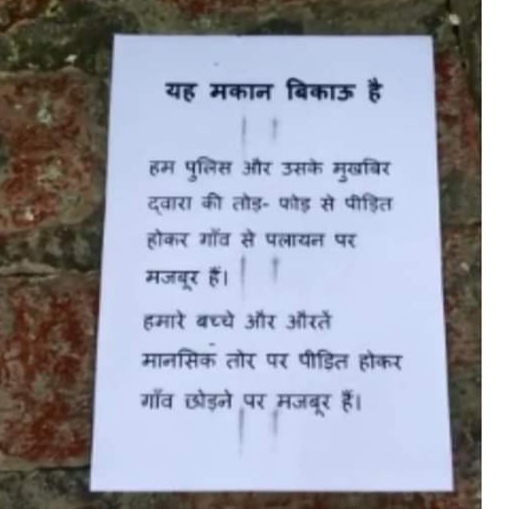 यह मकान बिकाऊ है
हम पुलिस और उसके मुखबिर
द्वारा की तोड़- फोड़ से पीड़ित
होकर गाँव से पलायन पर
मजबूर हैं।
हमारे बच्चे और औरतें
मानसिक तोर पर पीड़ित होकर
गाँव छोड़ने पर मजबूर हैं।